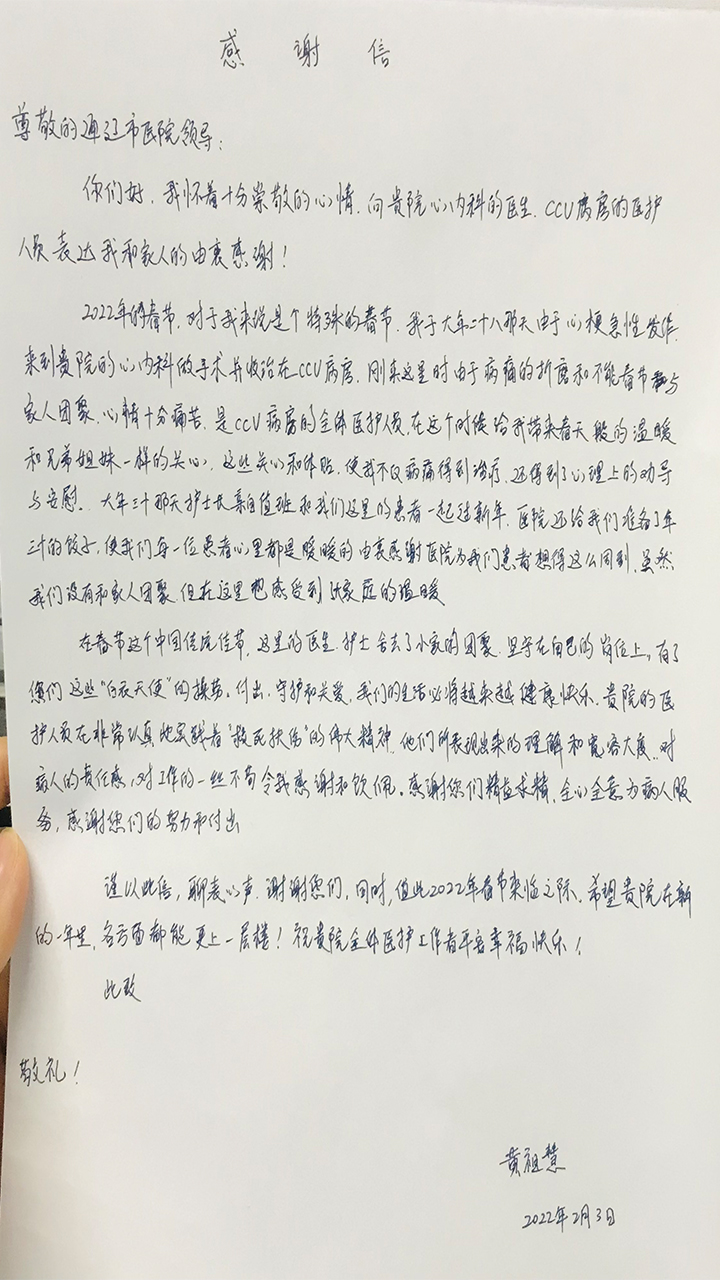 感 谢 信
尊敬的通辽市医院领导:
你们好,我怀着十分崇敬的心情,向贵院心内科的医生、CCU病房的医护
人员表达我和家人的由衷感谢!
2022年的春节,对于我来说是个特殊的春节,我于大年二十八那天由于心梗急性发作,
来到贵院的心内科做手术并收治在CCU病房,刚来这里时由于病痛的折磨和不能春节与
家人团聚,心情十分痛苦,是CCU病房的全体医护人员,在这个时候给我带来春天般的温暖
和兄弟姐妹一样的关心,这些关心和体贴,使我不仅病痛得到治疗,还得到了心理上的劝导
与安慰。大年三十那天护士长亲自值班和我们这里的患者一起过新年,医院还给我们准备了年
三十的饺子,使我们每一位患者心里都是暖暖的由衷感谢医院为我们患者想得这么周到,虽然
我们没有和家人团聚,但在这里也感受到家庭的温暖
在春节这个中国传统佳节,这里的医生、护士舍去了小家的团聚,坚守在自己的岗位上,有了
您们这些“白衣天使”的操劳、付出、守护和关爱,我们的生活必将越来越健康快乐,贵院的医
护人员在非常认真地实践着“救死扶伤”的伟大精神,他们所表现出来的理解和宽容大度,对
病人的责任感,对工作的一丝不苟令我感谢和钦佩。感谢您们精益求精,全心全意为病人服
务,感谢您们的努力和付出
谨以此信,聊表心声,谢谢您们,同时,值此2022年春节来临之际,希望贵院在新
的一年里,各方面都能更上一层楼!祝贵院全体医护工作者平安幸福快乐!
此致
敬礼!
黄祖慧
2022年2月3日